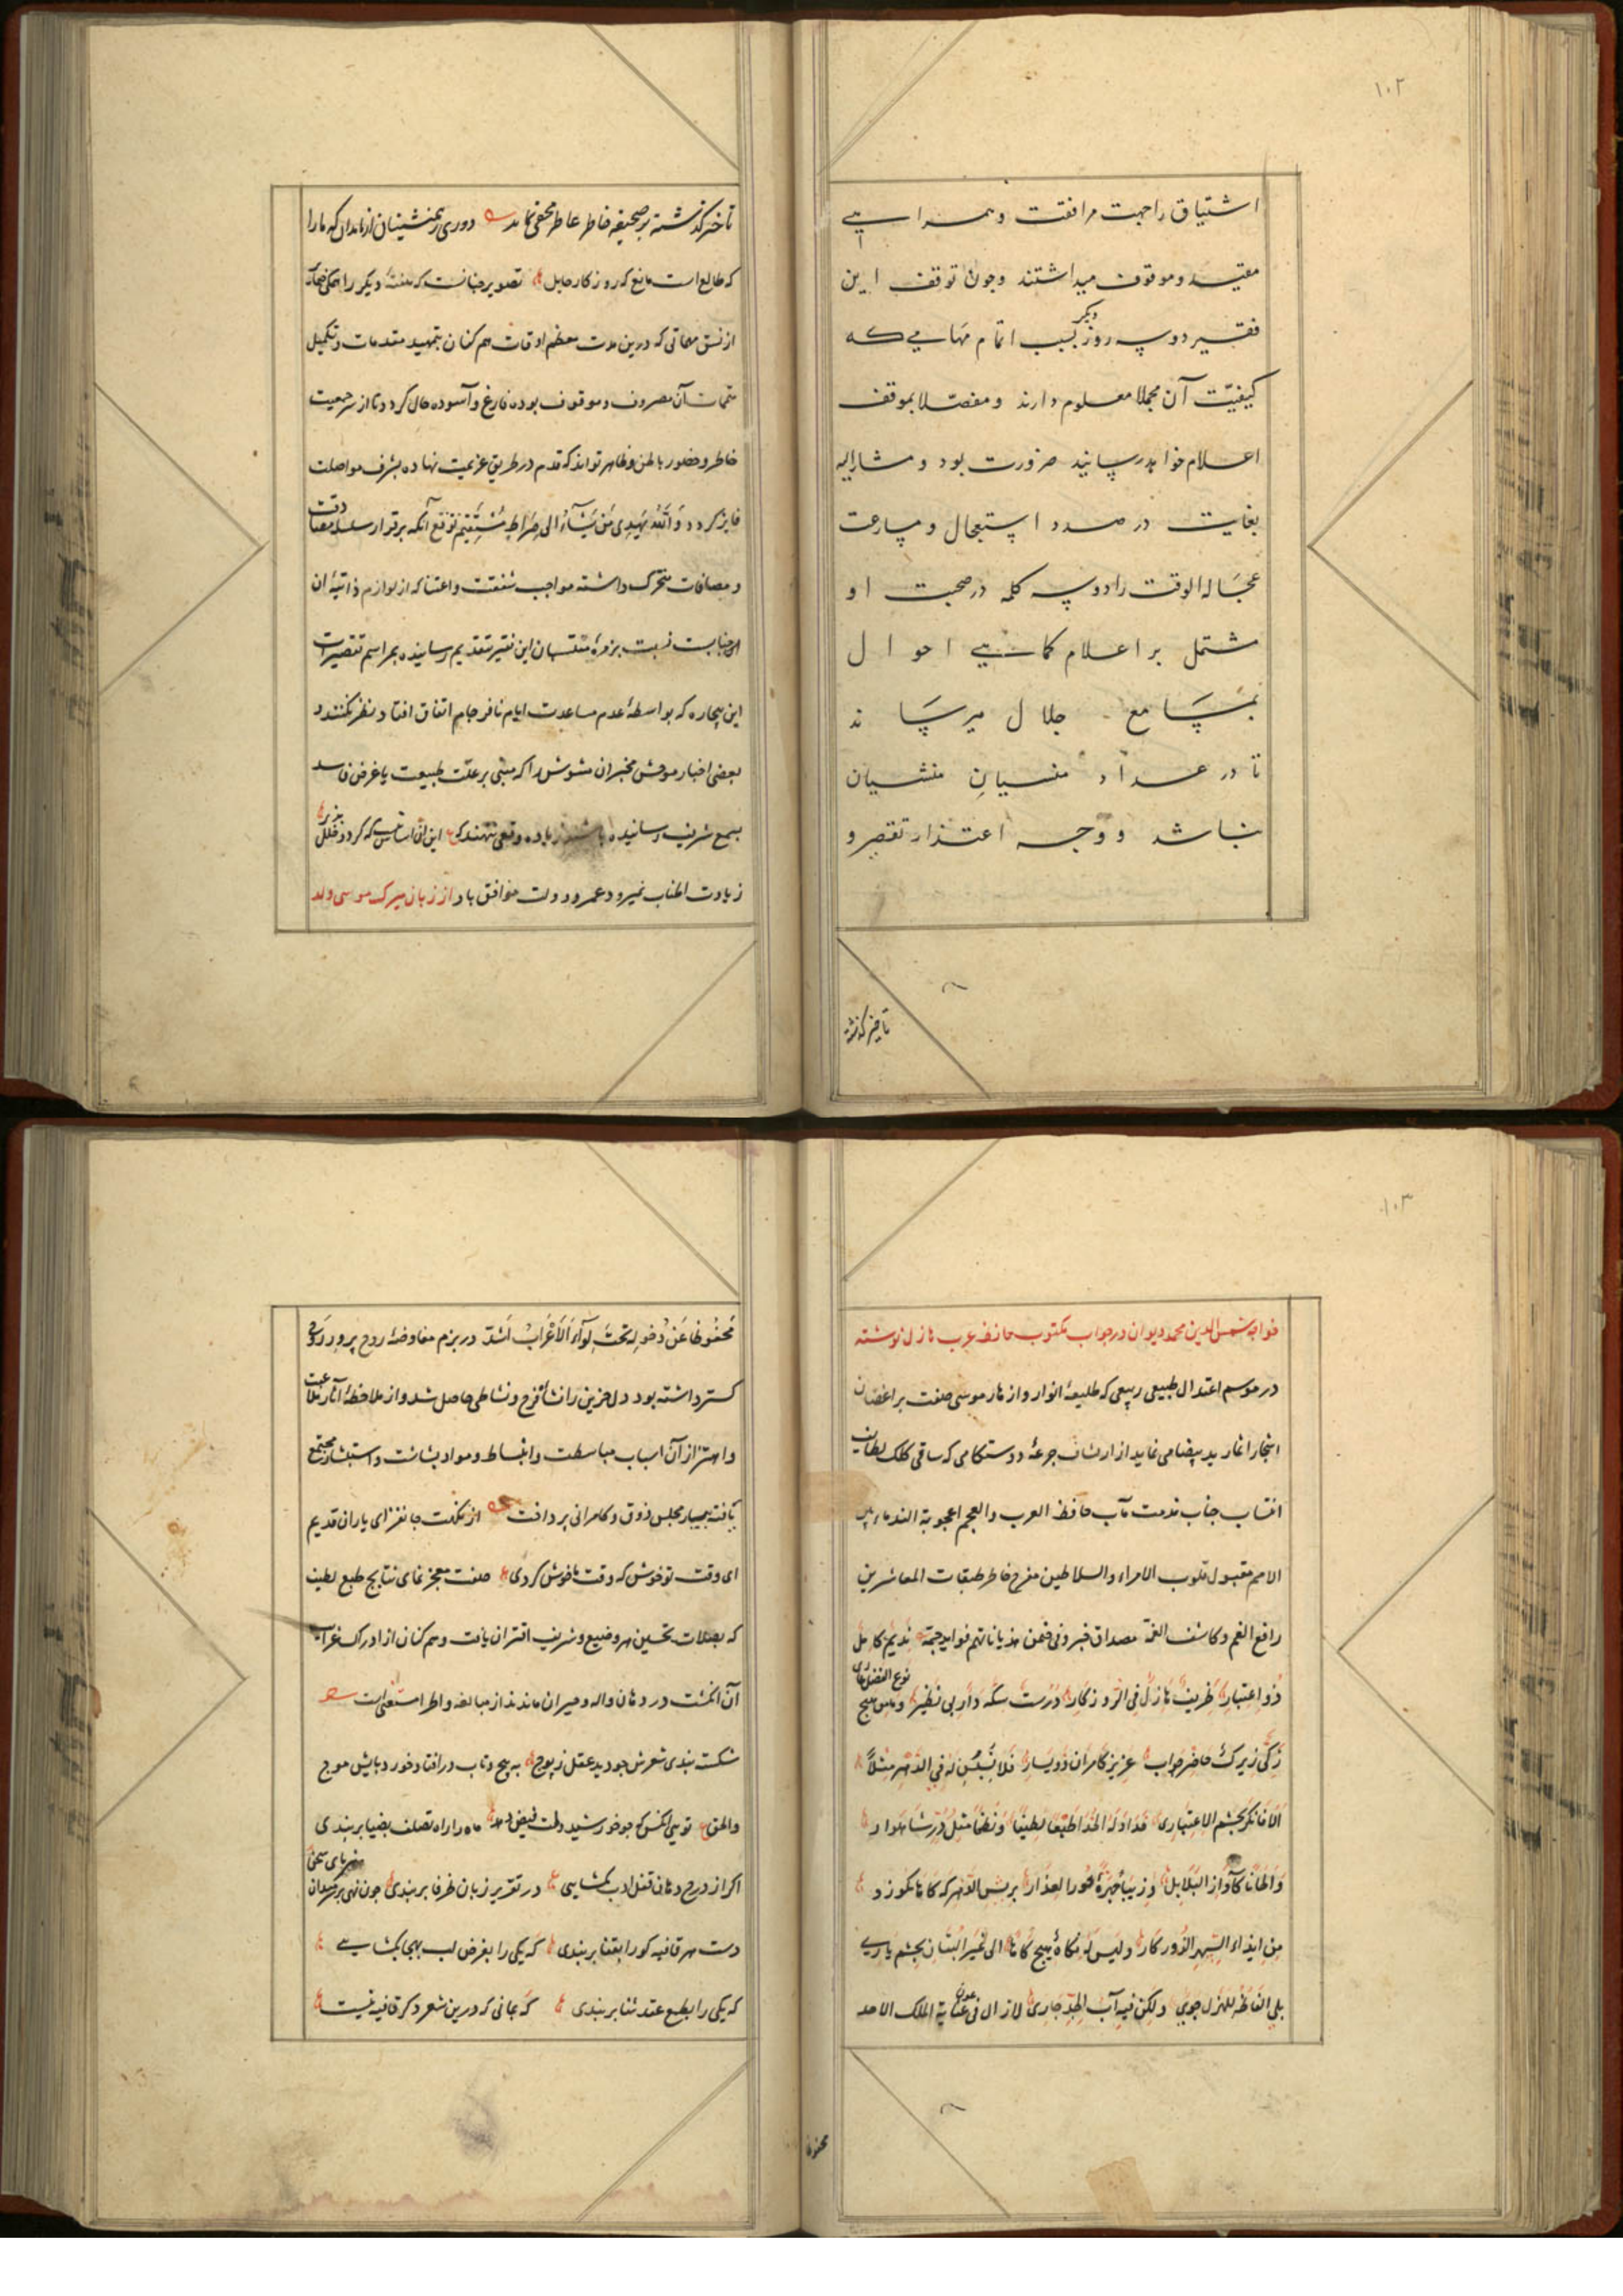 ۱۰۲
اشتیاق را جهت مرافقت و همراهی
مقید و موقوف میداشتند و چون توقف این
فقیر دو سه روز دیگر بسبب اتمام مهامی که
کیفیّت آن مجملا معلوم دارند و مفصّلا بموقف
اعلام خواهد رسانید ضرورت بود و مشارالیه
بغایت در صدد استعجال و مسارعت
عجالة الوقت را دو سه کلمه در صحبت او
مشتمل بر اعلام کماهی احوال
بمسامع جلال میرساند
تا در عداد منسیان منشیان
نباشد و وجه اعتذار تقصیر و
تاخیر گذشته
تاخیر گذشته بر صحیفه خاطر عاطر مخفی نماند دوری ز همنشینان از ما مدان که ما را
که طالع است مانع که روزگار حایل تصویر چنانست که هفتهٔ دیگر را
از نسق مهماتی که درین مدت معظم اوقات هم‌کنان بتمهید مقدمات و تکمیل
متممات آن مصروف و موقوف بوده فارغ و آسوده حال گردد و تا از سر جمعیت
خاطر و حضور باطن و ظاهر تواند که قدم در طریق عزیمت نهاده بشرف مواصلت
فایز گردد وَاللّٰهُ یَهْدِی مَنْ یَشَآءُ اِلی صِرَاطٍ مُسْتَقِیمٍ توقع آنکه بر قرار سلسله مصادقت
و مصافات متحرک داشته مواجب شفقت و اعتنا که از لوازم ذاتیهٔ آن
عالیجنابست نسبت بزمرهٔ منتسبان این فقیر تقدیم رسانیده بمراسم تقصیرات
این بیچاره که بواسطهٔ عدم مساعدت ایام نافرجام اتفاق افتاد نظر نکنند و
بعضی اخبار موحش مخبران مشوش را که مبنی بر علّت طبیعت یا غرض فاسد
بسمع شریف رسانیده باشند زیاده وقعی ننهند که این آن اساس نیست که گردد خلل پذیر
زیادت اطناب نمیرود عمر و دولت موافق باد از زبان میرک موسی ولد
۱۰۳
خواجه شمس الدین محمد دیوان در جواب مکتوب حافظ عرب هازل نوشته
در موسم اعتدال طبیعی ربیعی که طلیعهٔ انوار و ازهار موسی صفت بر اغصان
اشجار اغار ید بیضا می نماید از ارتشاف جرعهٔ دوستکامی که ساقی کلک لطایف
انتساب جناب ندمت مآب حافظ العرب والعجم اعجوبة الندماء بین
الامم مقبول قلوب الامراء والسلاطین مفرح خاطر طبقات المعاشرین
رافع الغم و کاشف الغمة مصداق خبرونی فمن هذیاناتهم فواید جمة ندیم کامل
ذو اعتبار ظریف هازل فی الروزگار دُرُست سکه دار بی نظیر نوع الفضل
زکی زیرک حاضر جواب عزیز کامران ذو یسار فلا نبین له فی الدهر مثلاً
الا فانکر بچشم الاعتباری خداد له الخدا طبعًا لطیفًا و نظمًا مثل دُرّ شاهوار
وَ الحانًا کآواز البلابل وَ زیبا چهرة حور العذار بریش الدهر که کاها نکوزد
مِن ایذاء السپهر الدور کار و لیس له نگاه هیچ گاها الی غیر البتان بچشم یاری
بلی الفاظه للهزل جوی ولکن فیه آب الجد جاری لازال فی عون عنایة الملک الاحد
محفوظا
مَحفُوظًا عَن دُخولِه تحتَ لِوآءِ الاَعْرابُ اَشَدّ در بزم مفاوضهٔ روح پرور رَوح
گستر داشته بود دل حزین را نشأ فرح و نشاطی حاصل شد و از ملاحظهٔ آثار ملاعبت
و اهتزاز آن اسباب مباسطت و انبساط و مواد بشاشت و استبشار مجتمع
یافته بمیار مجلس ذوق و کامرانی پرداخت از نکهت جانفزای یاران قدیم
ای وقت تو خوش که وقت ما خوش کردی صفت معجز نمای نتایج طبع لطیف
که بصلات تحسین هر وضیع و شریف اقتران یافت و هم‌کنان از ادراک غرایب
آن انگشت در دهان واله و حیران ماندند از مبالغه و اطرا مستغنی است
شکست بندی شعرش چو دید عقل ز پوچ به پیچ و تاب درافتاد و خورد بایش موج
والحق تویی آنکس که چو خورشید دلت فیض دهد ماه را راه تصلف بضیا بربندی
اگر از درج دهان قفل ادب بگشایی در تقریر زبان ظرفا بربندی چون نهی بر سر میدان سخن پای
دست هر قافیه کو را بقفا بربندی که یکی را بغرض لب بهجا بگشایی
که یکی را بطمع عقد ثنا بربندی گه بجانی که درین شعر دگر قافیه نیست